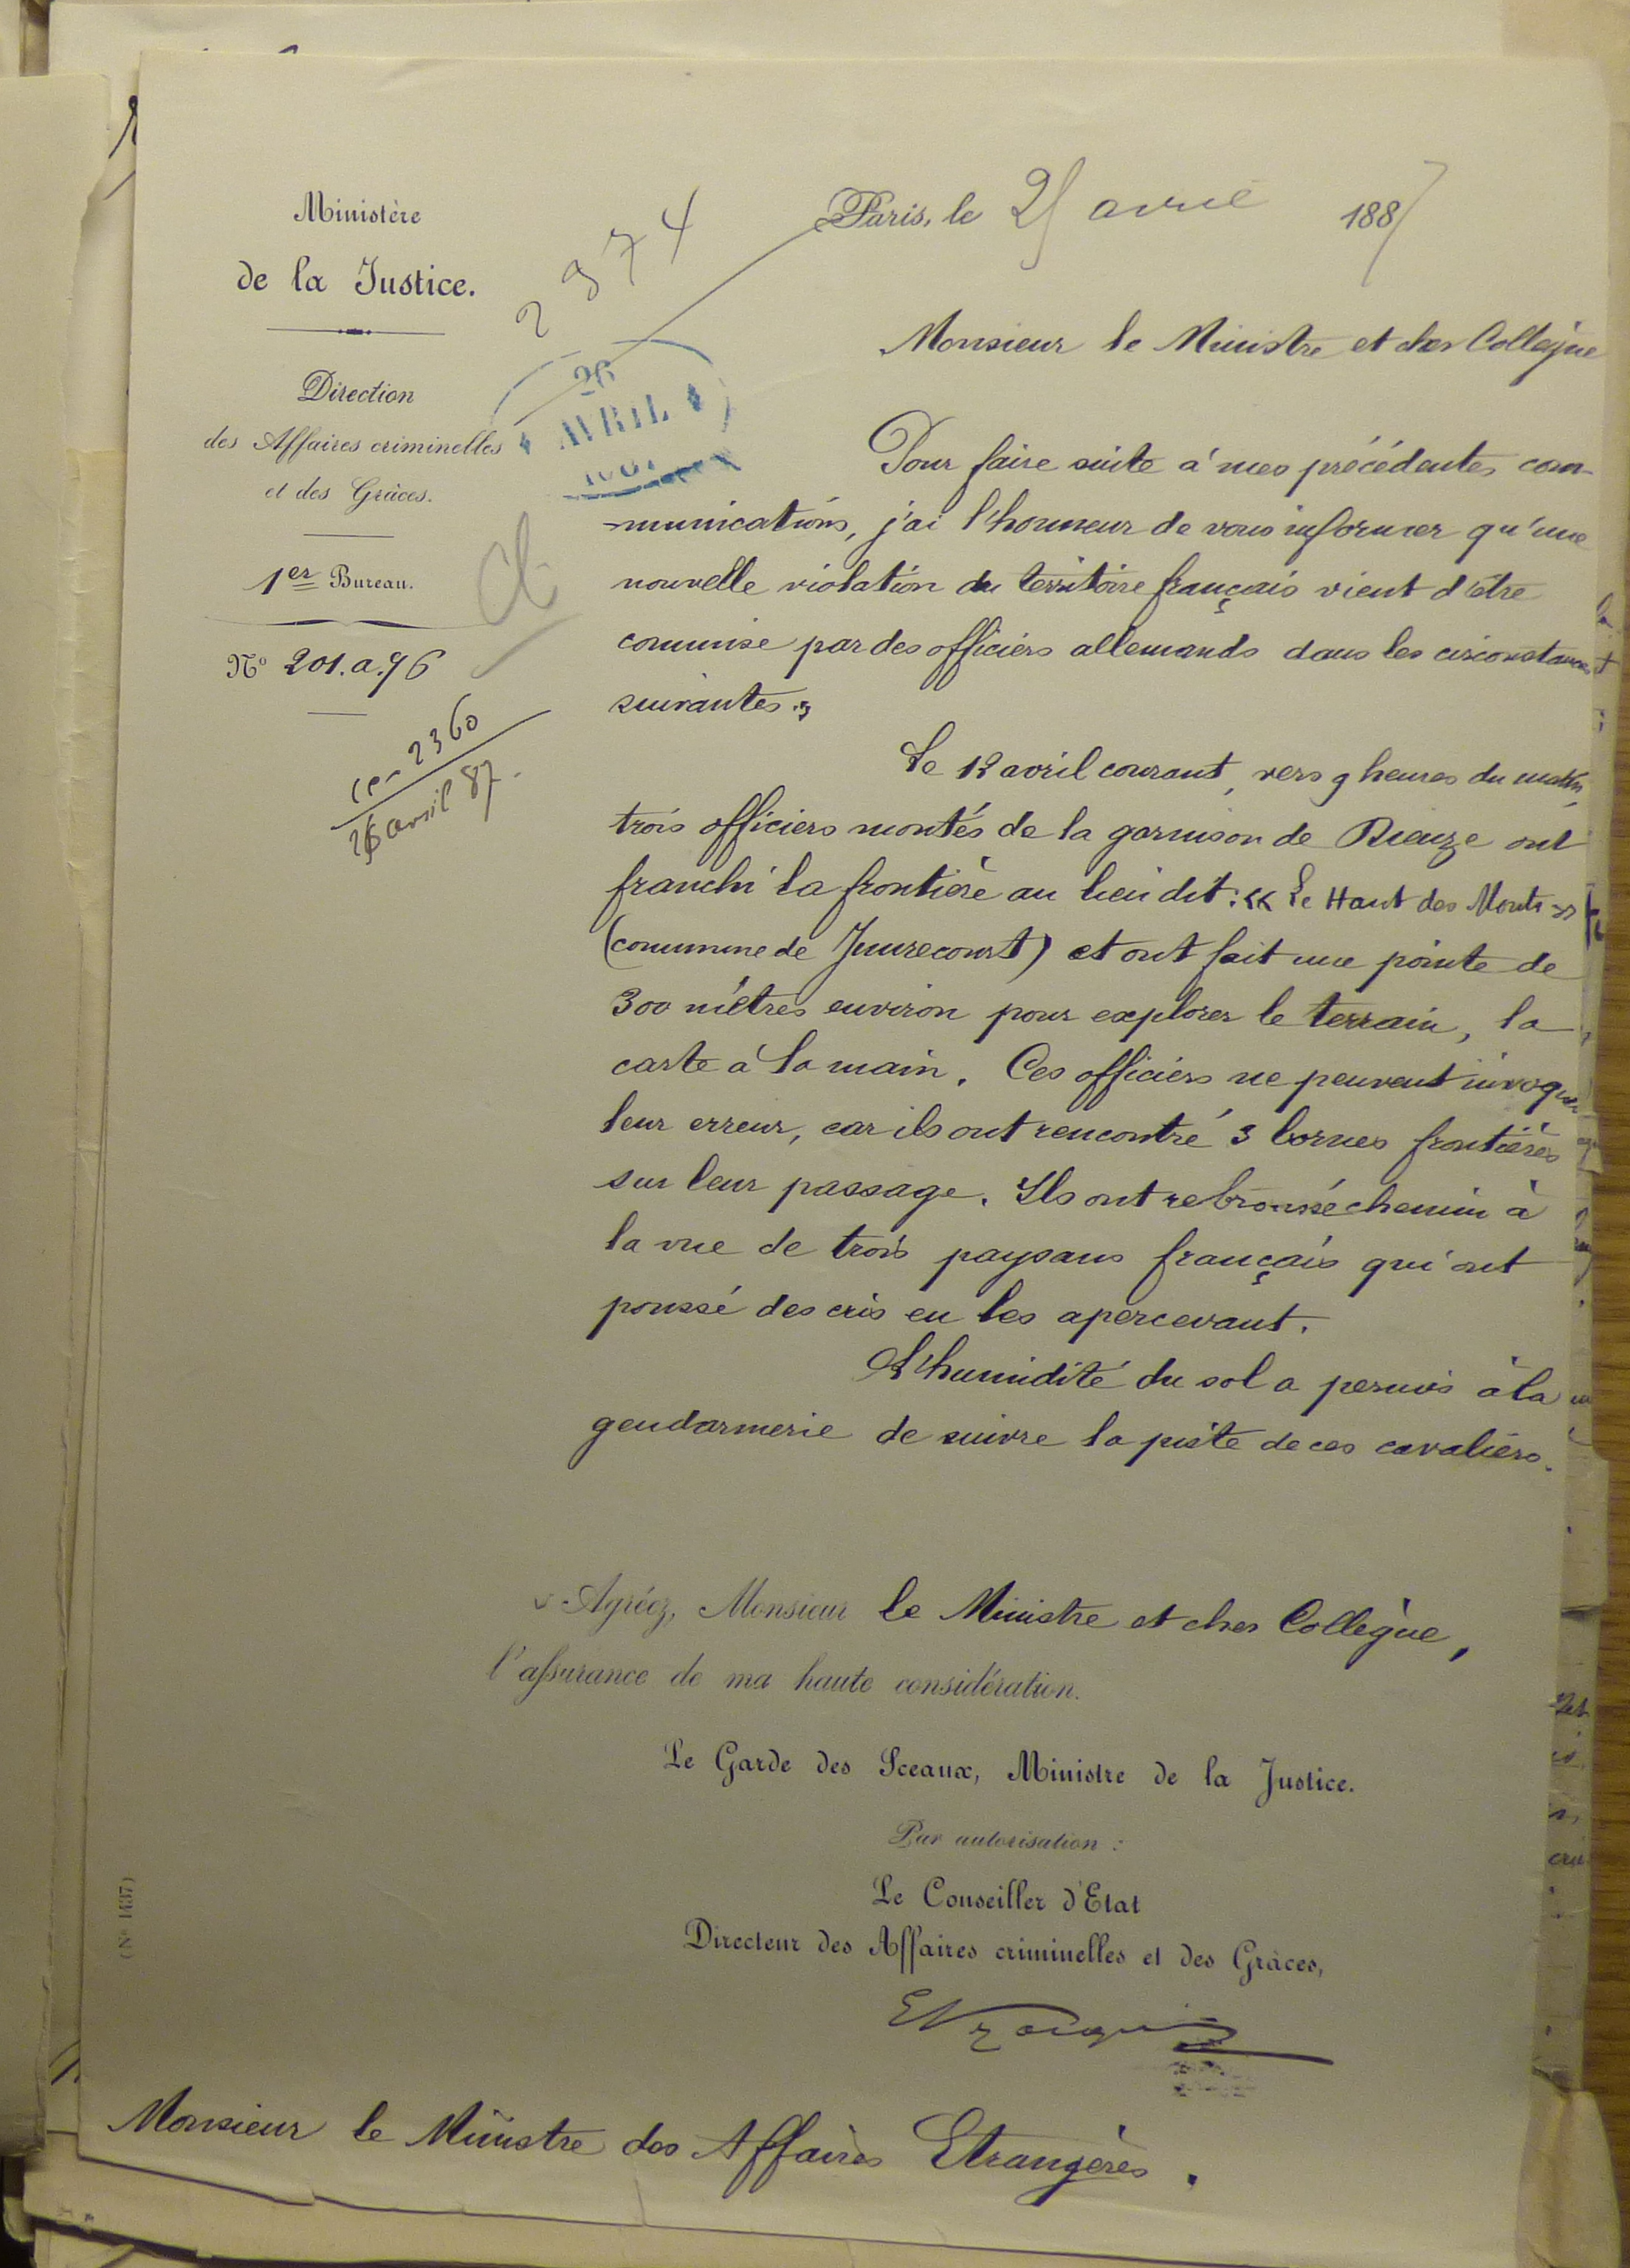 Ministère
de la Justice.
Direction
des Affaires criminelles
et des Grâces.
1er Bureau.
N° 201.a.96
2974
26
AVRIL
2360
26 avril 87.
Paris, le 25 avril 1887
Monsieur le Ministre et cher Collègue
Pour faire suite à mes précédentes com-
-munications, j'ai l'honneur de vous informer qu'une
nouvelle violation du territoire français vient d'être
commise par des officiers allemands dans les circonstances
suivantes :
Le 12 avril courant, vers 9 heures du matin,
trois officiers montés de la garnison de Dieuze ont
franchi la frontière au lieu dit : « Le Haut des Monts »
(commune de Juvrecourt) et ont fait une pointe de
300 mètres environ pour explorer le terrain, la
carte à la main. Ces officiers ne peuvent invoquer
leur erreur, car ils ont rencontré 3 bornes frontières
sur leur passage. Ils ont rebroussé chemin à
la vue de trois paysans français qui ont
poussé des cris en les apercevant.
L'humidité du sol a permis à la
gendarmerie de suivre la piste de ces cavaliers.
Agréez, Monsieur le Ministre et cher Collègue,
l'assurance de ma haute considération.
Le Garde des Sceaux, Ministre de la Justice.
Par autorisation :
Le Conseiller d'Etat
Directeur des Affaires criminelles et des Grâces,
(N° 1437)
Monsieur le Ministre des Affaires Etrangères.